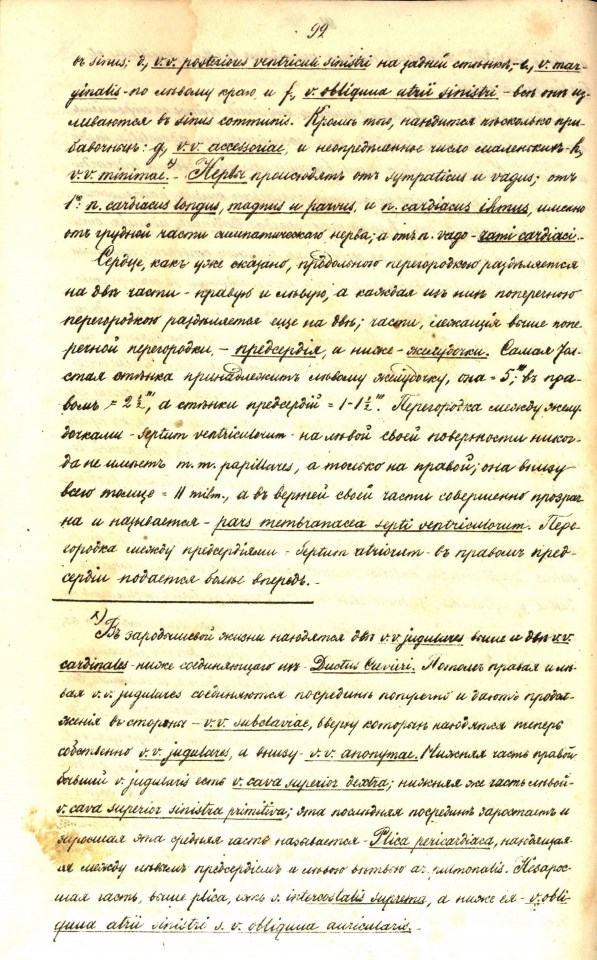 92
въ sinus; d, v.v. posteriores ventriculi sinistri на задней стѣнкѣ; e, v. mar-
ginalis - по лѣвому краю и f, v. obliqua atrii sinistri - всѣ онѣ из-
ливаются въ sinus communis. Кромѣ того, находится нѣсколько при-
бавочныхъ: g, v.v. accessoriae, и неопредѣленное число маленькихъ - h,
v.v. minimae. - Нервы происходятъ отъ sympaticus и vagus; отъ
1го n. cardiacus longus, magnus и parvus, и n. cardiacus imus, именно
отъ грудной части симпатическаго нерва; а отъ n. vago - rami cardiaci. -
Сердце, какъ уже сказано, продольною перегородкою раздѣляется
на двѣ части - правую и лѣвую, а каждая изъ нихъ поперечною
перегородкою раздѣляется еще на двѣ; части, лежащія выше попе-
речной перегородки, - предсердія, и ниже - желудочки. Самая тол-
стая стѣнка принадлежитъ лѣвому желудочку, она = 5'''; въ пра-
вомъ = 2½''', а стѣнки предсердій = 1-1½'''. Перегородка между желу-
дочками - septum ventriculorum - на лѣвой своей поверхности никог-
да не имѣетъ m.m. papillares, а только на правой; она внизу
всего толще = 11 milm., а въ верхней своей части совершенно прозрач-
на и называется - pars membranacea septi ventriculorum. Пере-
городка между предсердіями - septum atriorum - въ правомъ пред-
сердіи подается болѣе впередъ. -
Въ зародышевой жизни находятся двѣ v.v. jugulares выше и двѣ v.v.
cardinales - ниже соединяющаго ихъ - Ductus Cuvieri. Потомъ правая и лѣ-
вая v.v. jugulares соединяются посрединѣ поперечно и даютъ продол-
женія въ стороны - v.v. subclaviae, вверху которыхъ находятся теперь
собственно v.v. jugulares, и внизу - v.v. anonymae. Нижняя часть правой
бывшей v. jugularis есть v. cava superior dextra; нижняя же часть лѣвой -
v. cava superior sinistra primitiva; эта послѣдняя посрединѣ заростаетъ и
заросшая эта средняя часть называется - Plica pericardiaca, находящая-
ся между лѣвымъ предсердіемъ и лѣвою вѣтвью a. pulmonalis. Незарос-
шая часть, выше plica, есть v. intercostalis suprema, а ниже ея - v. obli-
qua atrii sinistri s. v. obliqua auricularis. -